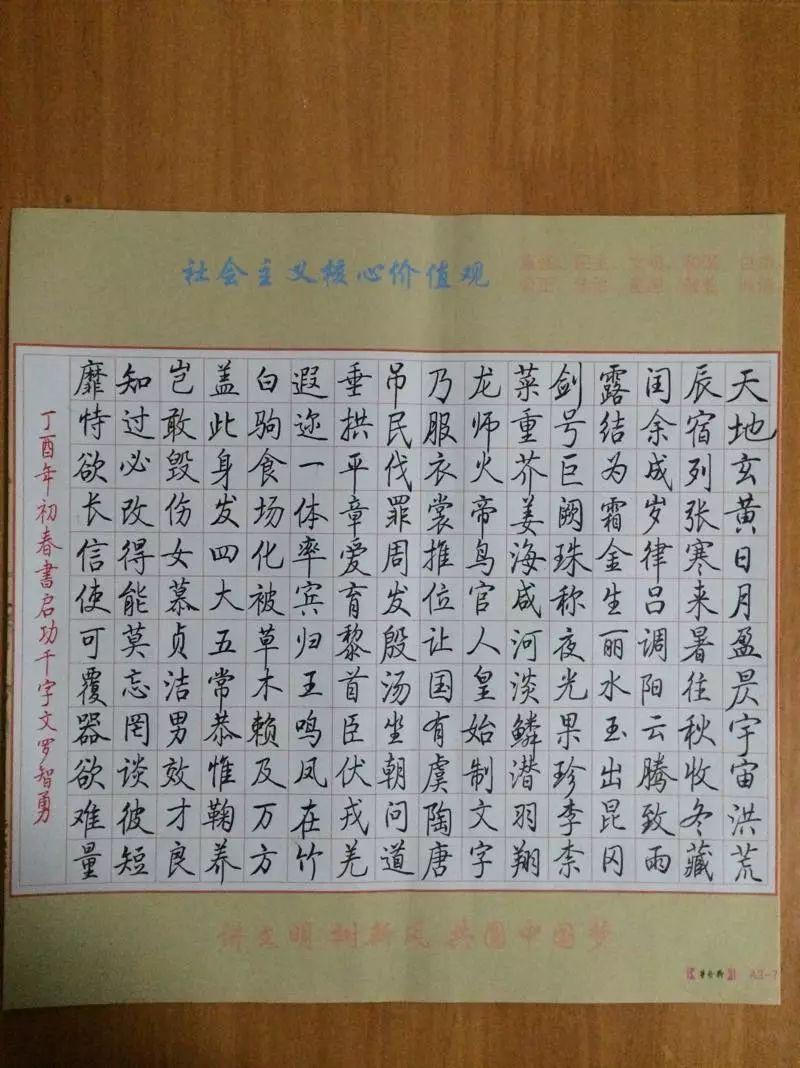 社会主义核心价值观
天地玄黄日月盈昃宇宙洪荒
辰宿列张寒来暑往秋收冬藏
闰余成岁律吕调阳云腾致雨
露结为霜金生丽水玉出昆冈
剑号巨阙珠称夜光果珍李柰
菜重芥姜海咸河淡鳞潜羽翔
龙师火帝鸟官人皇始制文字
乃服衣裳推位让国有虞陶唐
吊民伐罪周发殷汤坐朝问道
垂拱平章爱育黎首臣伏戎羌
遐迩一体率宾归王鸣凤在竹
白驹食场化被草木赖及万方
盖此身发四大五常恭惟鞠养
岂敢毁伤女慕贞洁男效才良
知过必改得能莫忘罔谈彼短
靡恃欲长信使可覆器欲难量
丁酉年初春書启功千字文罗智勇
讲文明 树新风 共圆中国梦
A3-7